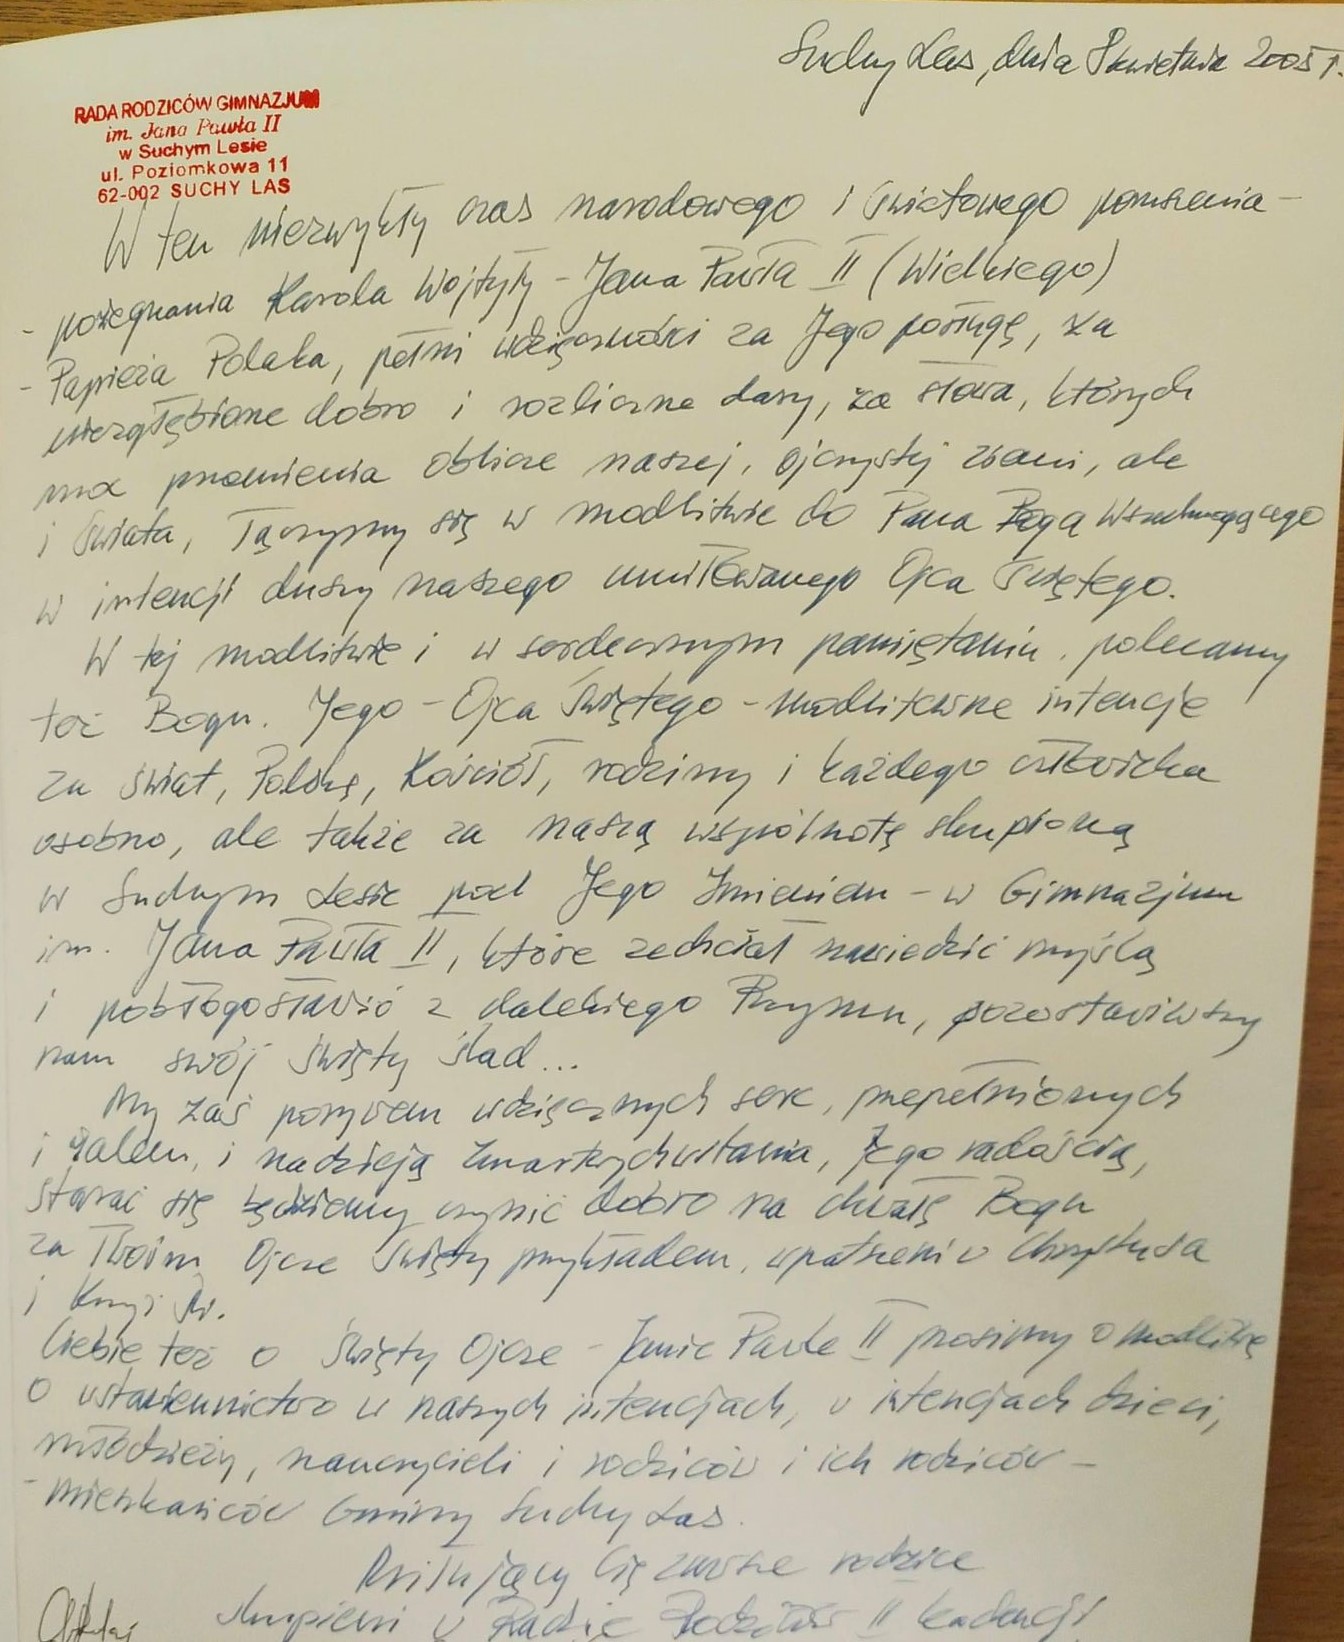 Suchy Las, dnia 8 kwietnia 2005 r.
RADA RODZICÓW GIMNAZJUM
im. Jana Pawła II
w Suchym Lesie
ul. Poziomkowa 11
62-002 SUCHY LAS
W ten niezwykły czas narodowego i światowego poruszenia -
- pożegnania Karola Wojtyły - Jana Pawła II (Wielkiego)
- Papieża Polaka, pełni wdzięczności za Jego posługę, za
niezgłębione dobro i rozliczne dary, za słowa, których
moc przemienia oblicze naszej, ojczystej ziemi, ale
i świata, łączymy się w modlitwie do Pana Boga Wszechmogącego
w intencji duszy naszego umiłowanego Ojca Świętego.
W tej modlitwie i w serdecznym pamiętaniu, polecamy
też Bogu. Jego - Ojca Świętego - modlitewne intencje
za świat, Polskę, Kościół, rodziny i każdego człowieka
osobno, ale także za naszą wspólnotę skupioną
w Suchym Lesie pod Jego Imieniem - w Gimnazjum
im. Jana Pawła II, które zechciał nawiedzić myślą
i pobłogosławić z dalekiego Rzymu, pozostawiwszy
nam swój święty ślad...
My zaś porywem wdzięcznych serc, przepełnionych
i żalem, i nadzieją zmartwychwstania, Jego radością,
starać się będziemy czynić dobro na chwałę Bogu
za Twoim Ojcze Święty przykładem, wpatrzeni w Chrystusa
i Krzyż Św.
Ciebie też o Święty Ojcze - Janie Pawle II prosimy o modlitwę
o wstawiennictwo w naszych intencjach, w intencjach dzieci,
młodzieży, nauczycieli i rodziców i ich rodziców -
- mieszkańców Gminy Suchy Las.
Miłujący Cię zawsze rodzice
skupieni w Radzie Rodziców II kadencji